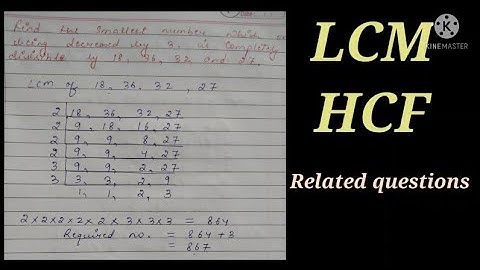 Find the smallest number which on
being decreased by 3, is completely
divisible by 18, 36, 32 and 27.
LCM of 18, 36, 32, 27
2 | 18, 36, 32, 27
2 | 9, 18, 16, 27
2 | 9, 9, 8, 27
2 | 9, 9, 4, 27
3 | 9, 9, 2, 27
3 | 3, 3, 2, 9
1, 1, 2, 3
2×2×2×2×2×3×3×3 = 864
Required no. = 864+3
= 867
LCM
HCF
Related questions
KINEMASTER